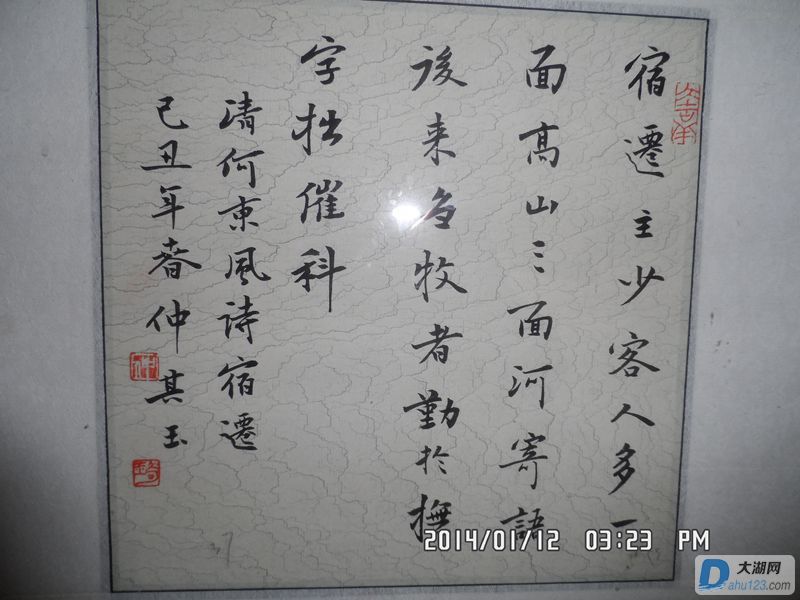 宿遷主少客人多一
面高山三面河寄語
後来為牧者勤於撫
字拙催科
清何東風詩宿遷
己丑年春仲其玉
2014/01/12 03:23 PM
大湖网
Dahu123.com